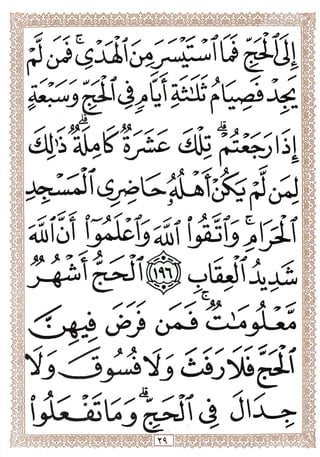 إِلَى ٱلْحَجِّ فَمَا ٱسْتَيْسَرَ مِنَ ٱلْهَدْىِ ۚ فَمَن لَّمْ
يَجِدْ فَصِيَامُ ثَلَـٰثَةِ أَيَّامٍ فِى ٱلْحَجِّ وَسَبْعَةٍ
إِذَا رَجَعْتُمْ ۗ تِلْكَ عَشَرَةٌ كَامِلَةٌ ۗ ذَٰلِكَ
لِمَن لَّمْ يَكُنْ أَهْلُهُۥ حَاضِرِى ٱلْمَسْجِدِ
ٱلْحَرَامِ ۚ وَٱتَّقُوا۟ ٱللَّهَ وَٱعْلَمُوٓا۟ أَنَّ ٱللَّهَ
شَدِيدُ ٱلْعِقَابِ ١٩٦ ٱلْحَجُّ أَشْهُرٌ
مَّعْلُومَـٰتٌ ۚ فَمَن فَرَضَ فِيهِنَّ
ٱلْحَجَّ فَلَا رَفَثَ وَلَا فُسُوقَ وَلَا
جِدَالَ فِى ٱلْحَجِّ ۗ وَمَا تَفْعَلُوا۟
٢٩